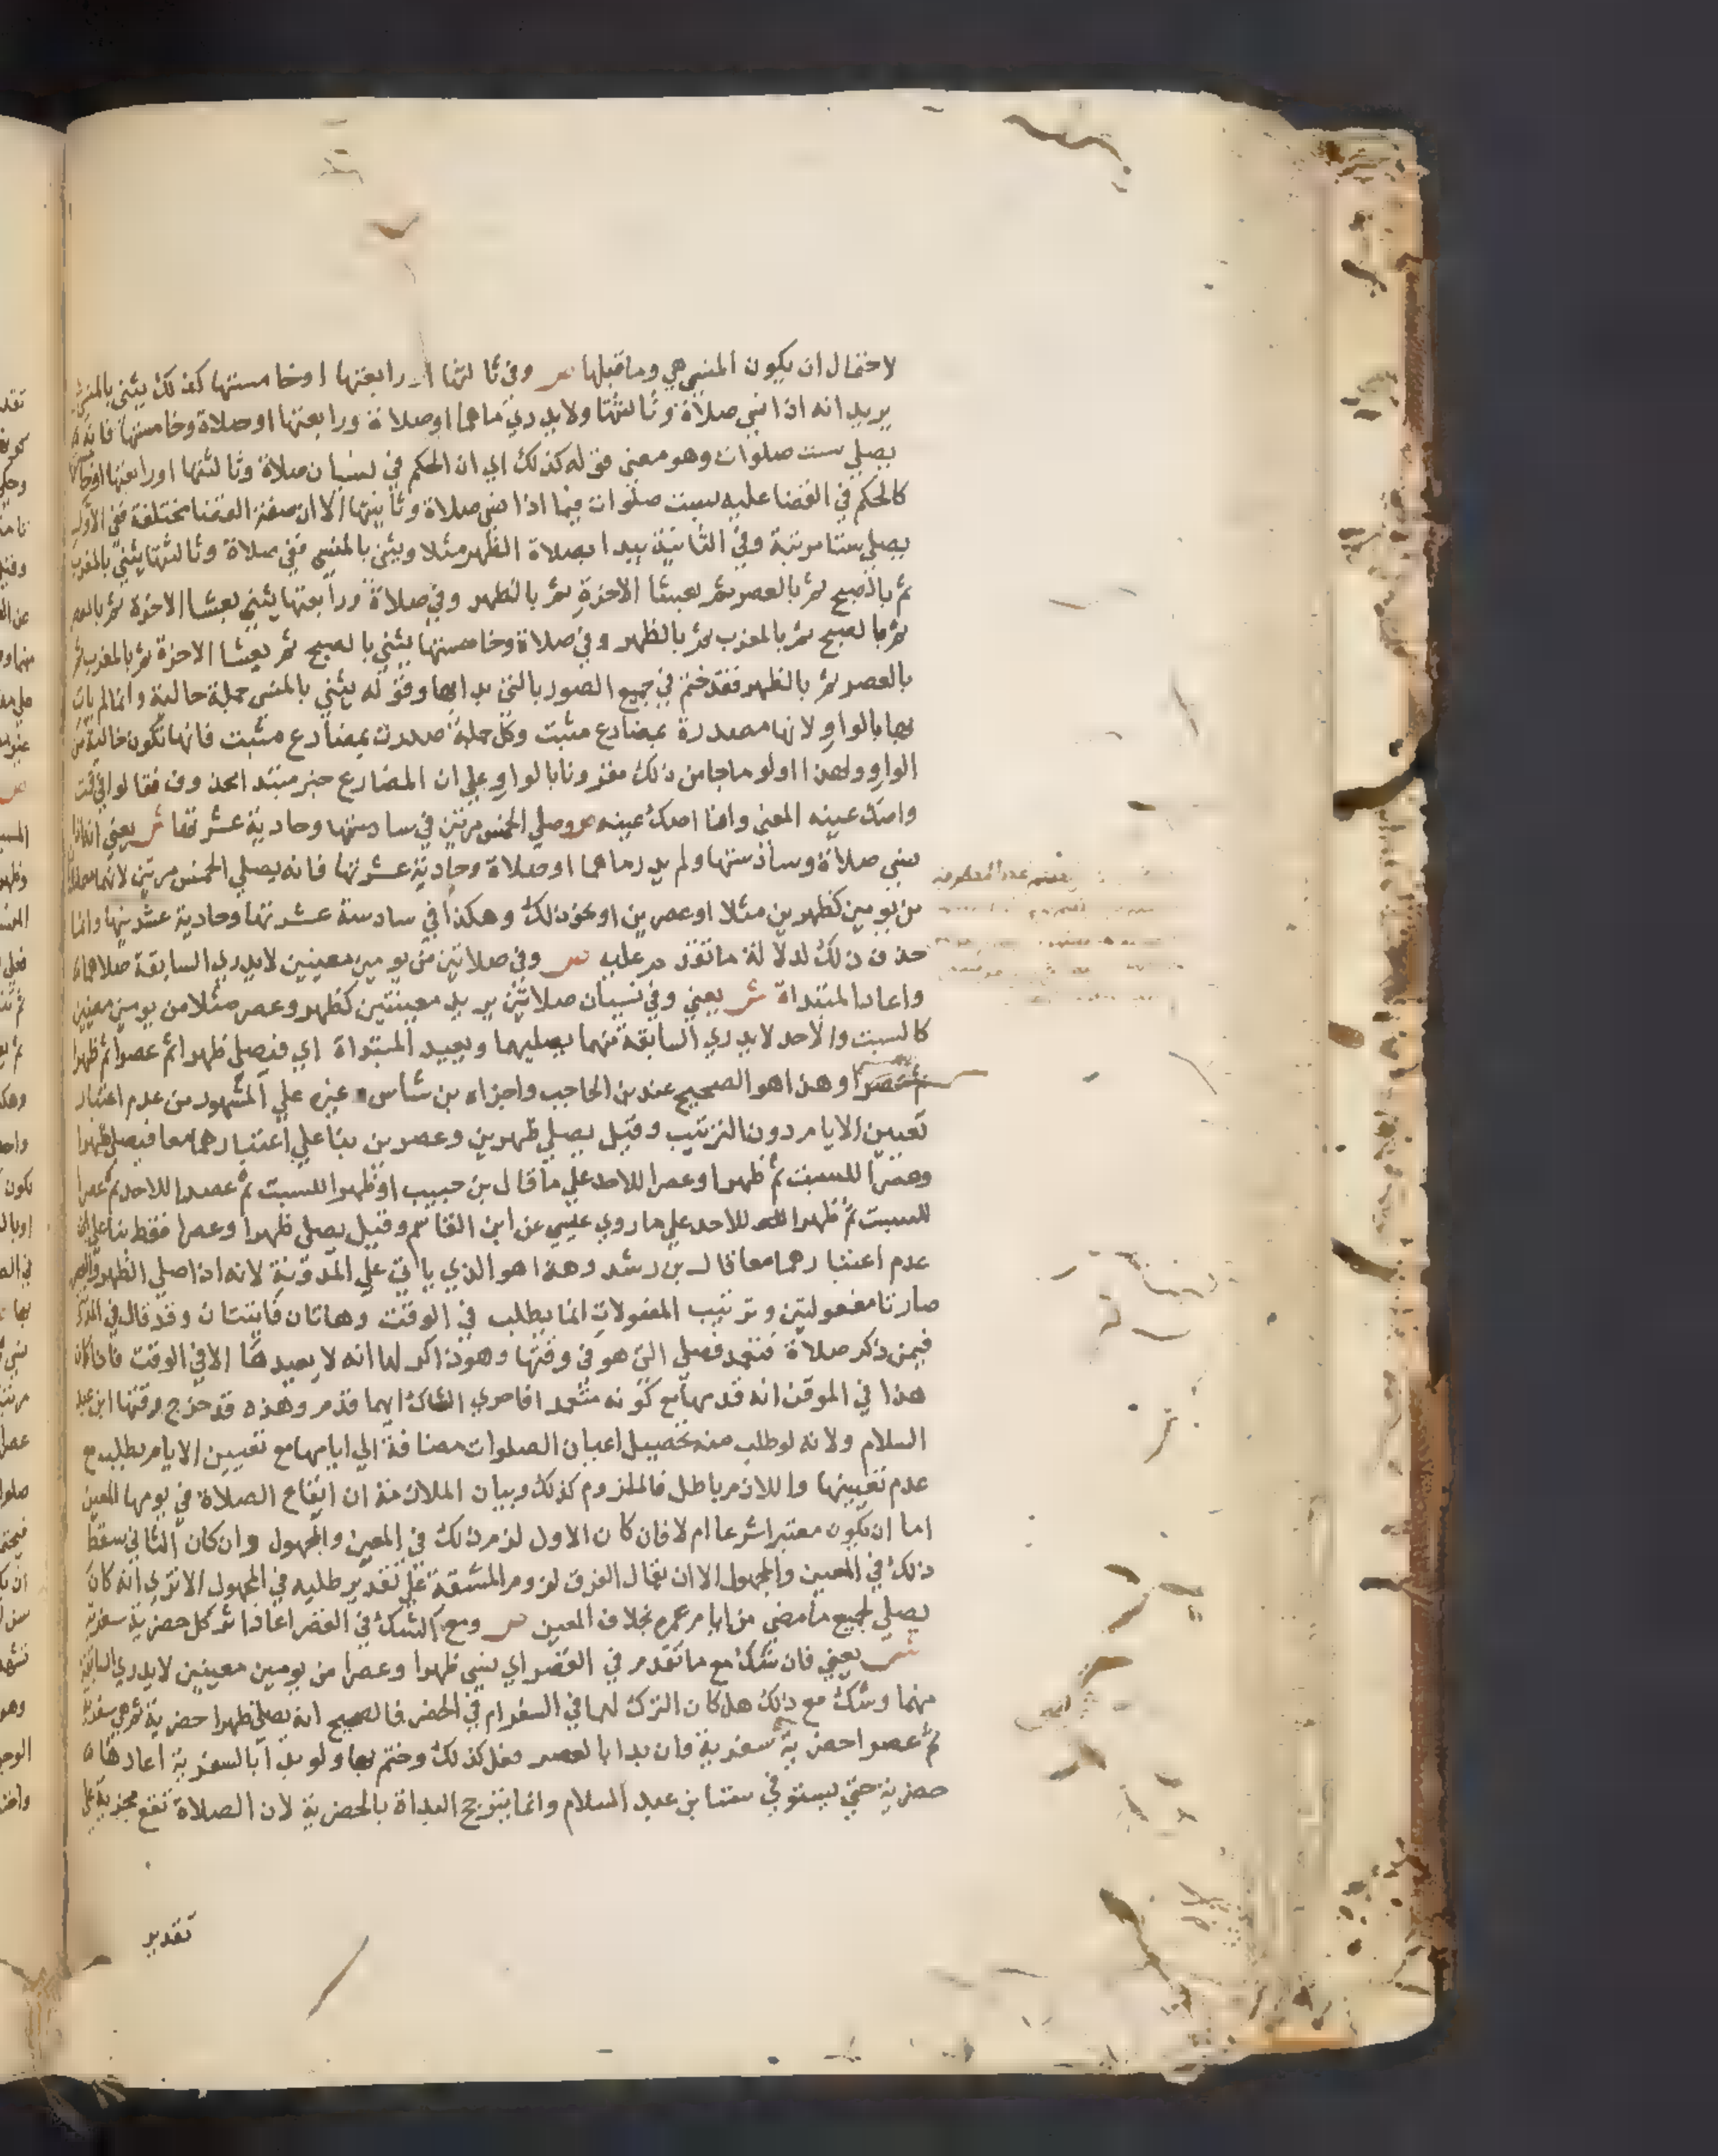 لاحتمال ان يكون المنسي هي وما قبلها ص وفي ثالثتها او رابعتها او خامستها كذلك يثني بالمنسي
يريد انه اذا نسي صلاة وثالثتها ولا يدري ما هما او صلاة ورابعتها او صلاة وخامستها فانه
يصلي ست صلوات وهو معني قوله كذلك اي ان الحكم في نسيان صلاة وثالثتها او رابعتها او خا
كالحكم في القضا عليه بست صلوات فيما اذا نسي صلاة وثانيتها الا ان صفة القضا مختلفة ففي الاول
يصلي ستا مرتبة وفي الثانية يبدا بصلاة الظهر مثلا ويثني بالمنسي ففي صلاة وثالثتها يثني بالمغرب
ثم بالصبح ثم بالعصر ثم بعشا الاخرة ثم بالظهر وفي صلاة ورابعتها يثني بعشا الاخرة ثم بالعصر
ثم بالصبح ثم بالمغرب ثم بالظهر وفي صلاة وخامستها يثني بالصبح ثم بعشا الاخرة ثم بالمغرب ثم
بالعصر ثم بالظهر فقد ختم في جميع الصور بالتي بدا بها وقوله يثني بالمنسي جملة حالية وانما لم يات
بها بالواو لانها مصدرة بمضارع مثبت وكل جملة صدرت بمضارع مثبت فانها تكون خالية من
الواو ولهذا اولو ما جا من ذلك مقرونا بالواو علي ان المضارع خبر مبتدا محذوف فقالوا في قمت
واصك عينه المعني وانا اصك عينه ص وصلي الخمس مرتين في سادستها وحادية عشرتها ش يعني انه اذا
نسي صلاة وسادستها ولم يدر ما هما او صلاة وحادية عشرتها فانه يصلي الخمس مرتين لانهما صلاتان
من يومين كظهرين مثلا او عصرين او نحو ذلك وهكذا في سادسة عشرتها وحادية عشرينها وانما
حذف ذلك لدلالة ما تقدم عليه ص وفي صلاتين من يومين معينين لا يدري السابقة صلاهما
واعاد المبتداة ش يعني وفي نسيان صلاتين يريد معينتين كظهر وعصر مثلا من يومين معينين
كالسبت والاحد لا يدري السابقة منهما يصليهما ويعيد المبتداة اي فيصلي ظهرا ثم عصرا ثم ظهرا
ثم عصرا وهذا هو الصحيح عند بن الحاجب واجزاه بن شاس غيره علي المشهور من عدم اعتبار
تعيين الايام دون الترتيب وقيل يصلي ظهرين وعصرين بنا علي اعتبارهما معا فيصلي ظهرا
وعصرا للسبت ثم ظهرا وعصرا للاحد علي ما قال بن حبيب او ظهرا للسبت ثم عصرا للاحد ثم عصرا
للسبت ثم ظهرا للاحد علي ما روي عيسي عن ابن القاسم وقيل يصلي ظهرا وعصرا فقط بنا علي ان
عدم اعتبارهما معا قال بن رشد وهذا هو الذي ياتي علي المدونة لانه اذا صلي الظهر والعصر
صارتا مفعولتين وترتيب المفعولات انما يطلب في الوقت وهاتان فايتتان وقد قال في المدونة
فيمن ذكر صلاة فتعمد فصلي التي هو في وقتها وهو ذاكر لها انه لا يعيدها الا في الوقت فاذا كان
هذا في الموقن انه قدمها مع كونه متعمدا فاحري الشاك ايهما قدم وهذه قد خرج وقتها ابن عبد
السلام ولانه لو طلب منه تحصيل اعيان الصلوات مضافة الي ايامها مع تعيين الايام يطلبه مع
عدم تعيينها واللازم باطل فالملزوم كذلك وبيان الملازمة ان ايقاع الصلاة في يومها المعين
اما ان يكون معتبرا شرعا ام لا فان كان الاول لزم ذلك في المعين والمجهول وان كان الثاني سقط
ذلك في المعين والمجهول الا ان يقال الفرق لزوم المشقة علي تقدير طلبه في المجهول الا تري انه كان
يصلي لجميع ما مضي من ايام عمره بخلاف المعين ص ومع الشك في القصر اعاد اثر كل حضرية سفرية
ش يعني فان شك مع ما تقدم في القصر اي نسي ظهرا وعصرا من يومين معينين لا يدري السابقة
منهما وشك مع ذلك هل كان الترك لهما في السفر ام في الحضر فالصحيح انه يصلي ظهرا حضرية ثم هي سفرية
ثم عصرا حضرية ثم سفرية فان بدا بالعصر فعل كذلك وختم بها ولو بدا بالسفرية اعادها
حضرية حتي يستوفي ستا بن عبد السلام وانما يترجح البداة بالحضرية لان الصلاة تقع مجزية علي
تقدير